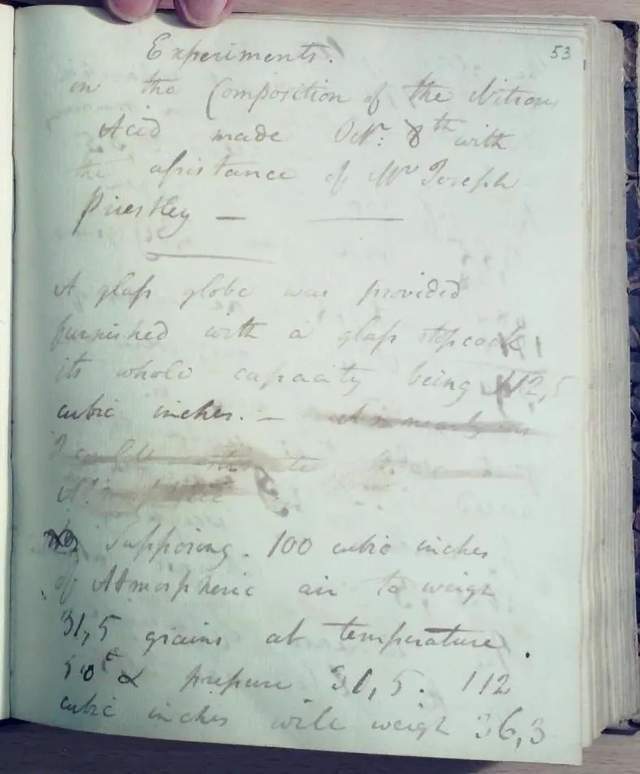 53
Experiments.
on the Composition of the Nitrous
Acid made Octr. 8th with
the assistance of Mr Joseph
Priestley —
A glass globe was provided
furnished with a glass stopcock
its whole capacity being 112,5
cubic inches. —
Supposing. 100 cubic inches
of Atmospheric air to weigh
31,5 grains at temperature
50° & pressure 31,5. 112
cubic inches will weigh 36,3